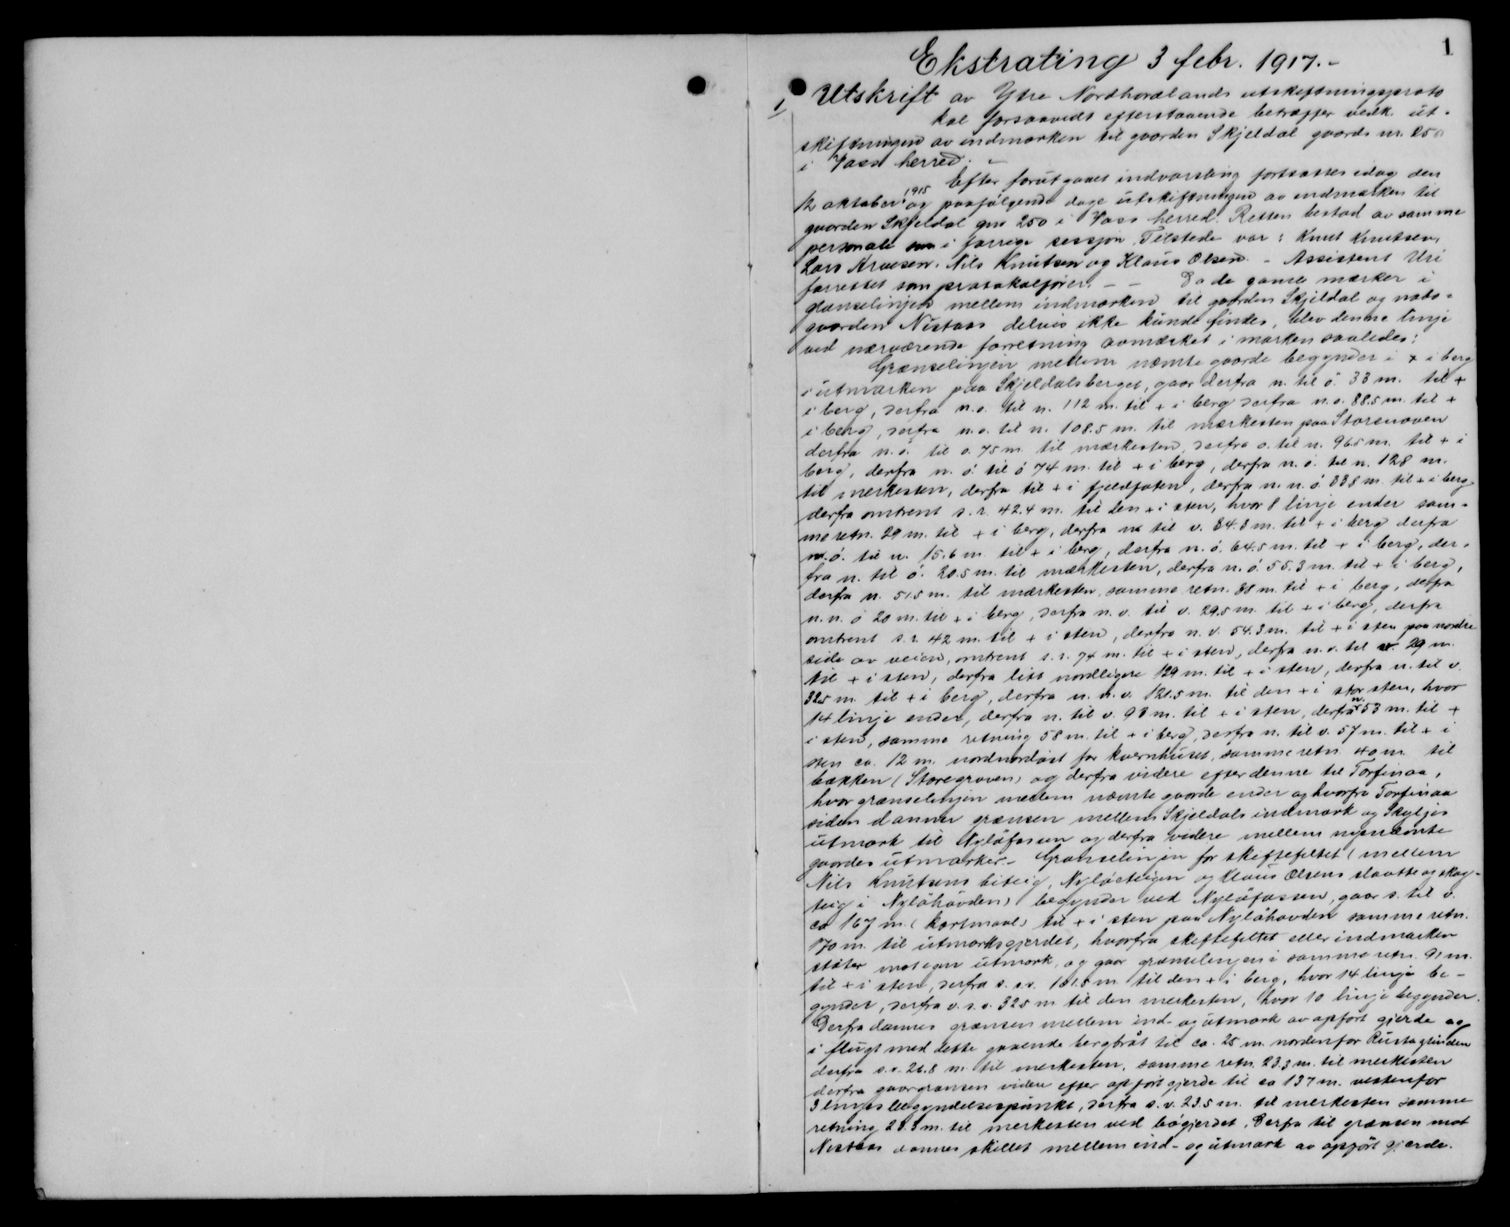 1
Ekstrating 3 febr. 1917.-
1, Utskrift av Ytre Nordhordlands utskiftningsproto
kol forsaavidt efterstaaende betræffer vedk. ut-
skiftningen av indmarken til gaarden Skjeldal gaards nr. 250
i Voss herred.-
Efter forutgaaet indvarsling fortsattes idag den
12 oktober 1915 og paafølgende dage utskiftningen av indmarken til
gaarden Skjeldal gnr 250 i Voss herred. Retten bestod av samme
personale som i forrige sessjon. Tilstede var: Knut Knutsen,
Lars Arnesen, Nils Knutsen og Klaus Olsen. - Assistent Uri
forrettet som protokolfører. - - Da de gamle merker i
grænselinjen mellem indmarken til gaarden Skjeldal og nabo-
gaarden Nistaas delvis ikke kunde findes, blev denne linje
ved nærværende forretning avmerket i marken saaledes:
Grænselinjen mellem nævnte gaarde begynder i + i berg
i utmarken paa Skjeldalsberget, gaar derfra n. til ö. 33 m. til +
i berg, derfra n.o. til n. 112 m. til + i berg derfra n.o. 88.5 m. til +
i berg, derfra n.o. til n. 108.5 m. til merkesten paa Storemoven
derfra n.o. til o. 75 m til merkesten, derfra o. til n. 96.5 m. til + i
berg, derfra n. ö. til ö 74 m. til + i berg, derfra n.ö. til n. 128 m.
til merkesten, derfra til + i fjeldfoten, derfra n. n. ö 338 m. til + i berg
derfra omtrent s. r. 42.4 m. til den + i sten, hvor 8 linje ender sam-
me retn. 29 m. til + i berg, derfra n. til v. 34.3 m. til + i berg derfra
n.ö. til n. 15.6 m. til + i berg, derfra n.ö. 64.5 m. til + i berg, der-
fra n. til ö. 20.5 m. til merkesten, derfra n.ö. 55.3 m. til + i berg,
derfra n. 51.5 m. til merkesten samme retn. 38 m. til + i berg, derfra
n. n. ö 20 m. til + i berg, derfra n. v. til v. 29.5 m. til + i berg, derfra
omtrent s. r. 42 m. til + i sten, derfra n. v. 54.3 m. til + i sten paa nordre
side av veien, omtrent s. r. 74 m. til + i sten, derfra n.v. til v. 29 m.
til + i sten, derfra litt nordligere 129 m. til + i sten, derfra n. til v.
32.5 m. til + i berg, derfra n. n. v. 121.5 m. til den + i stor sten, hvor
14 linje ender, derfra n. til v. 93 m. til + i sten, derfra n. 53 m. til +
i sten, samme retning 58 m. til + i berg, derfra n. til v. 57 m. til + i
sten ca. 12 m. nordnordöst for kvernhuset, samme retn 40 m. til
bækken (Storegroven) og derfra videre efter denne til Torfinaa,
hvor grænselinjen mellem nævnte gaarde ender og hvorfra Torfinaa
siden danner grænsen mellem Skjeldals indmark og Skyljes
utmark til Nylöfossen og derfra videre mellem nysnævnte
gaardes utmarker.- Grænselinjen for skiftefeltet (mellem
Nils Knutsens biteig, Nylöeteigen og Klaus Olsens slaatte og skog-
teig i Nylöhovden) begynder ved Nylöfossen, gaar s. til v.
ca 167 m. (kartmaal) til + i sten paa Nylöhovden samme retn.
170 m. til utmarksgjerdet, hvorfra skiftefeltet eller indmarken
støter mot egen utmark, og gaar grænselinjen i samme retn. 91 m.
til + i sten, derfra s. s.v. 101.5 m. til den + i berg, hvor 14 linje be-
gynder, derfra v. s. v. 325 m til den merkesten, hvor 10 linje begynder.
Derfra dannes grænsen mellem ind- og utmark av opført gjerde og
i flugt med dette gaaende bergbråt til ca. 25 m. nordenfor Rustagrinden
derfra s.v. 26.8 m. til merkesten, samme retn. 23.3 m. til merkesten
derfra gaar grænsen videre efter opført gjerde til ca 137 m. vestenfor
3 linjes begyndelsespunkt, derfra s. v. 23.5 m. til merkesten samme
retning 23.3 m. til merkesten ved bögjerdet. Derfra til grænsen mot
Nistaas dannes skillet mellem ind- og utmark av opført gjerde.